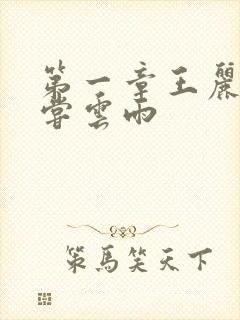 第一章王麗
嘗雲雨
策馬笑天下